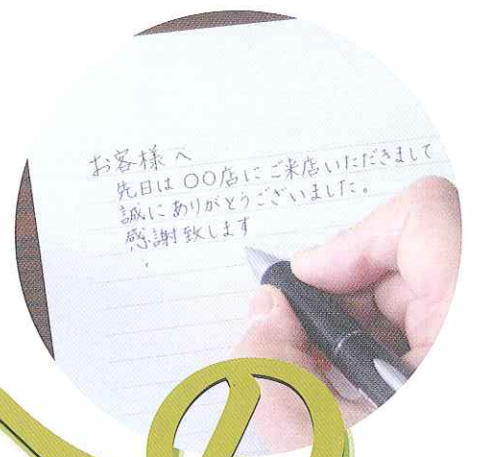 お客様へ
先日は〇〇店にご来店いただきまして
誠にありがとうございました。
感謝致します
の